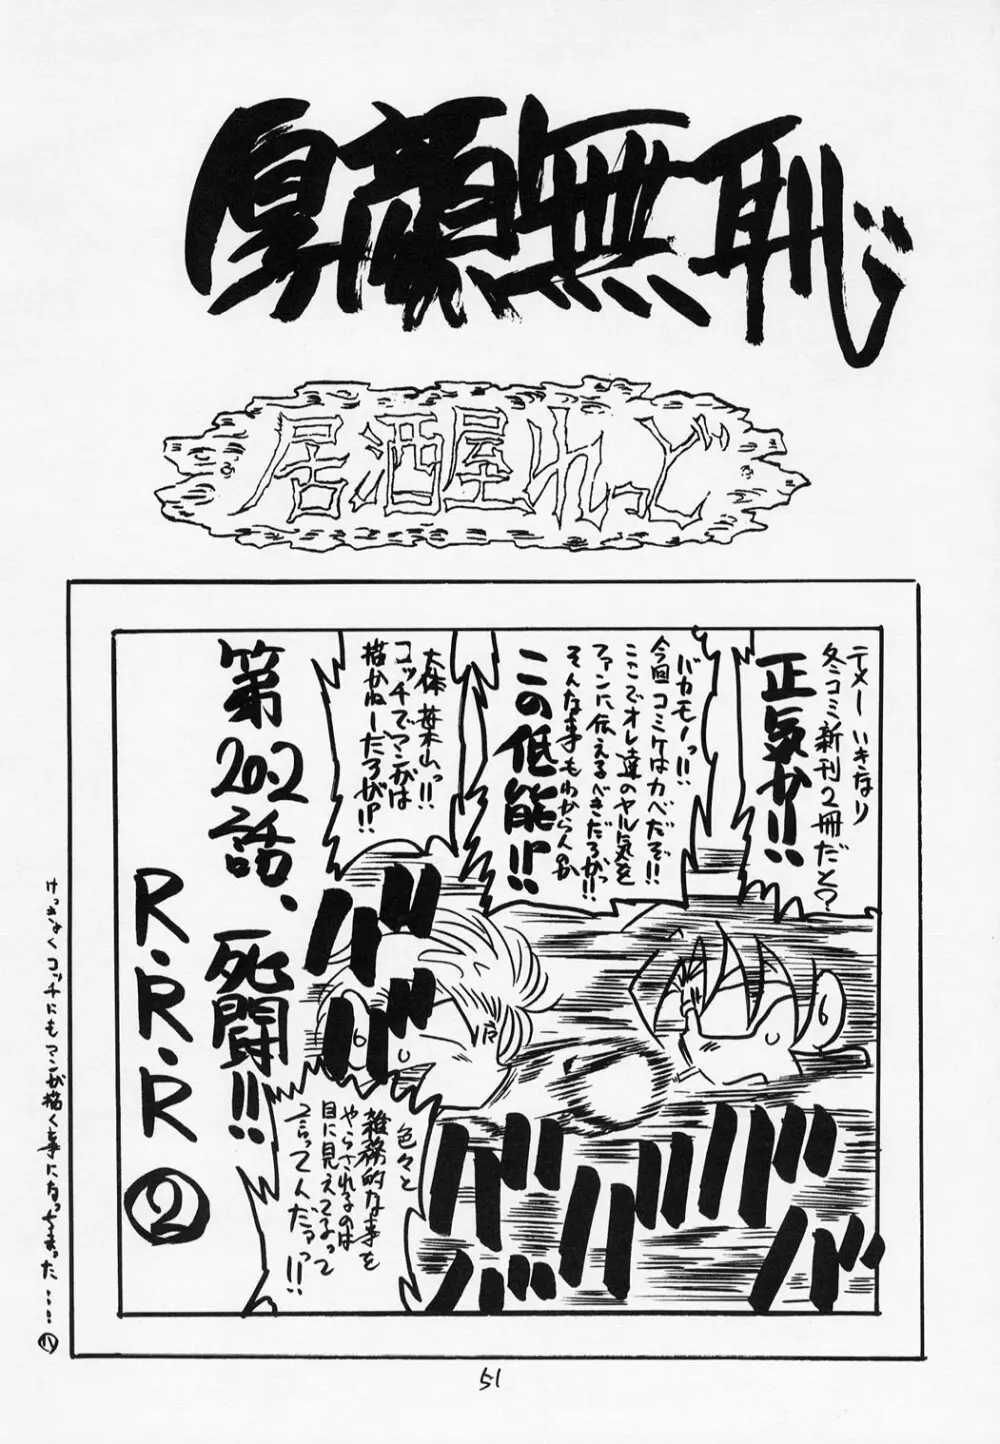 厚顔無恥
居酒屋れっど
テメー いきなり
冬コミ新刊2冊だと?
正気か!!
バカモノっ!!
今回コミケはカベだぞ!!
ここでオレ達のヤル気を
ファンに伝えるべきだろがっ!!
そんな事もわからんのか
この低能!!?
大体 葉山っ!!
コッチでマンガは
描かねーだろが!?
第202話、死闘!!
R.R.R②
色々と
雑務的な事を
やらされるのは
目に見えてるって
言ってんだろっ!!
けっきょくコッチにもマンガ描く事になっちまった……ハ
51